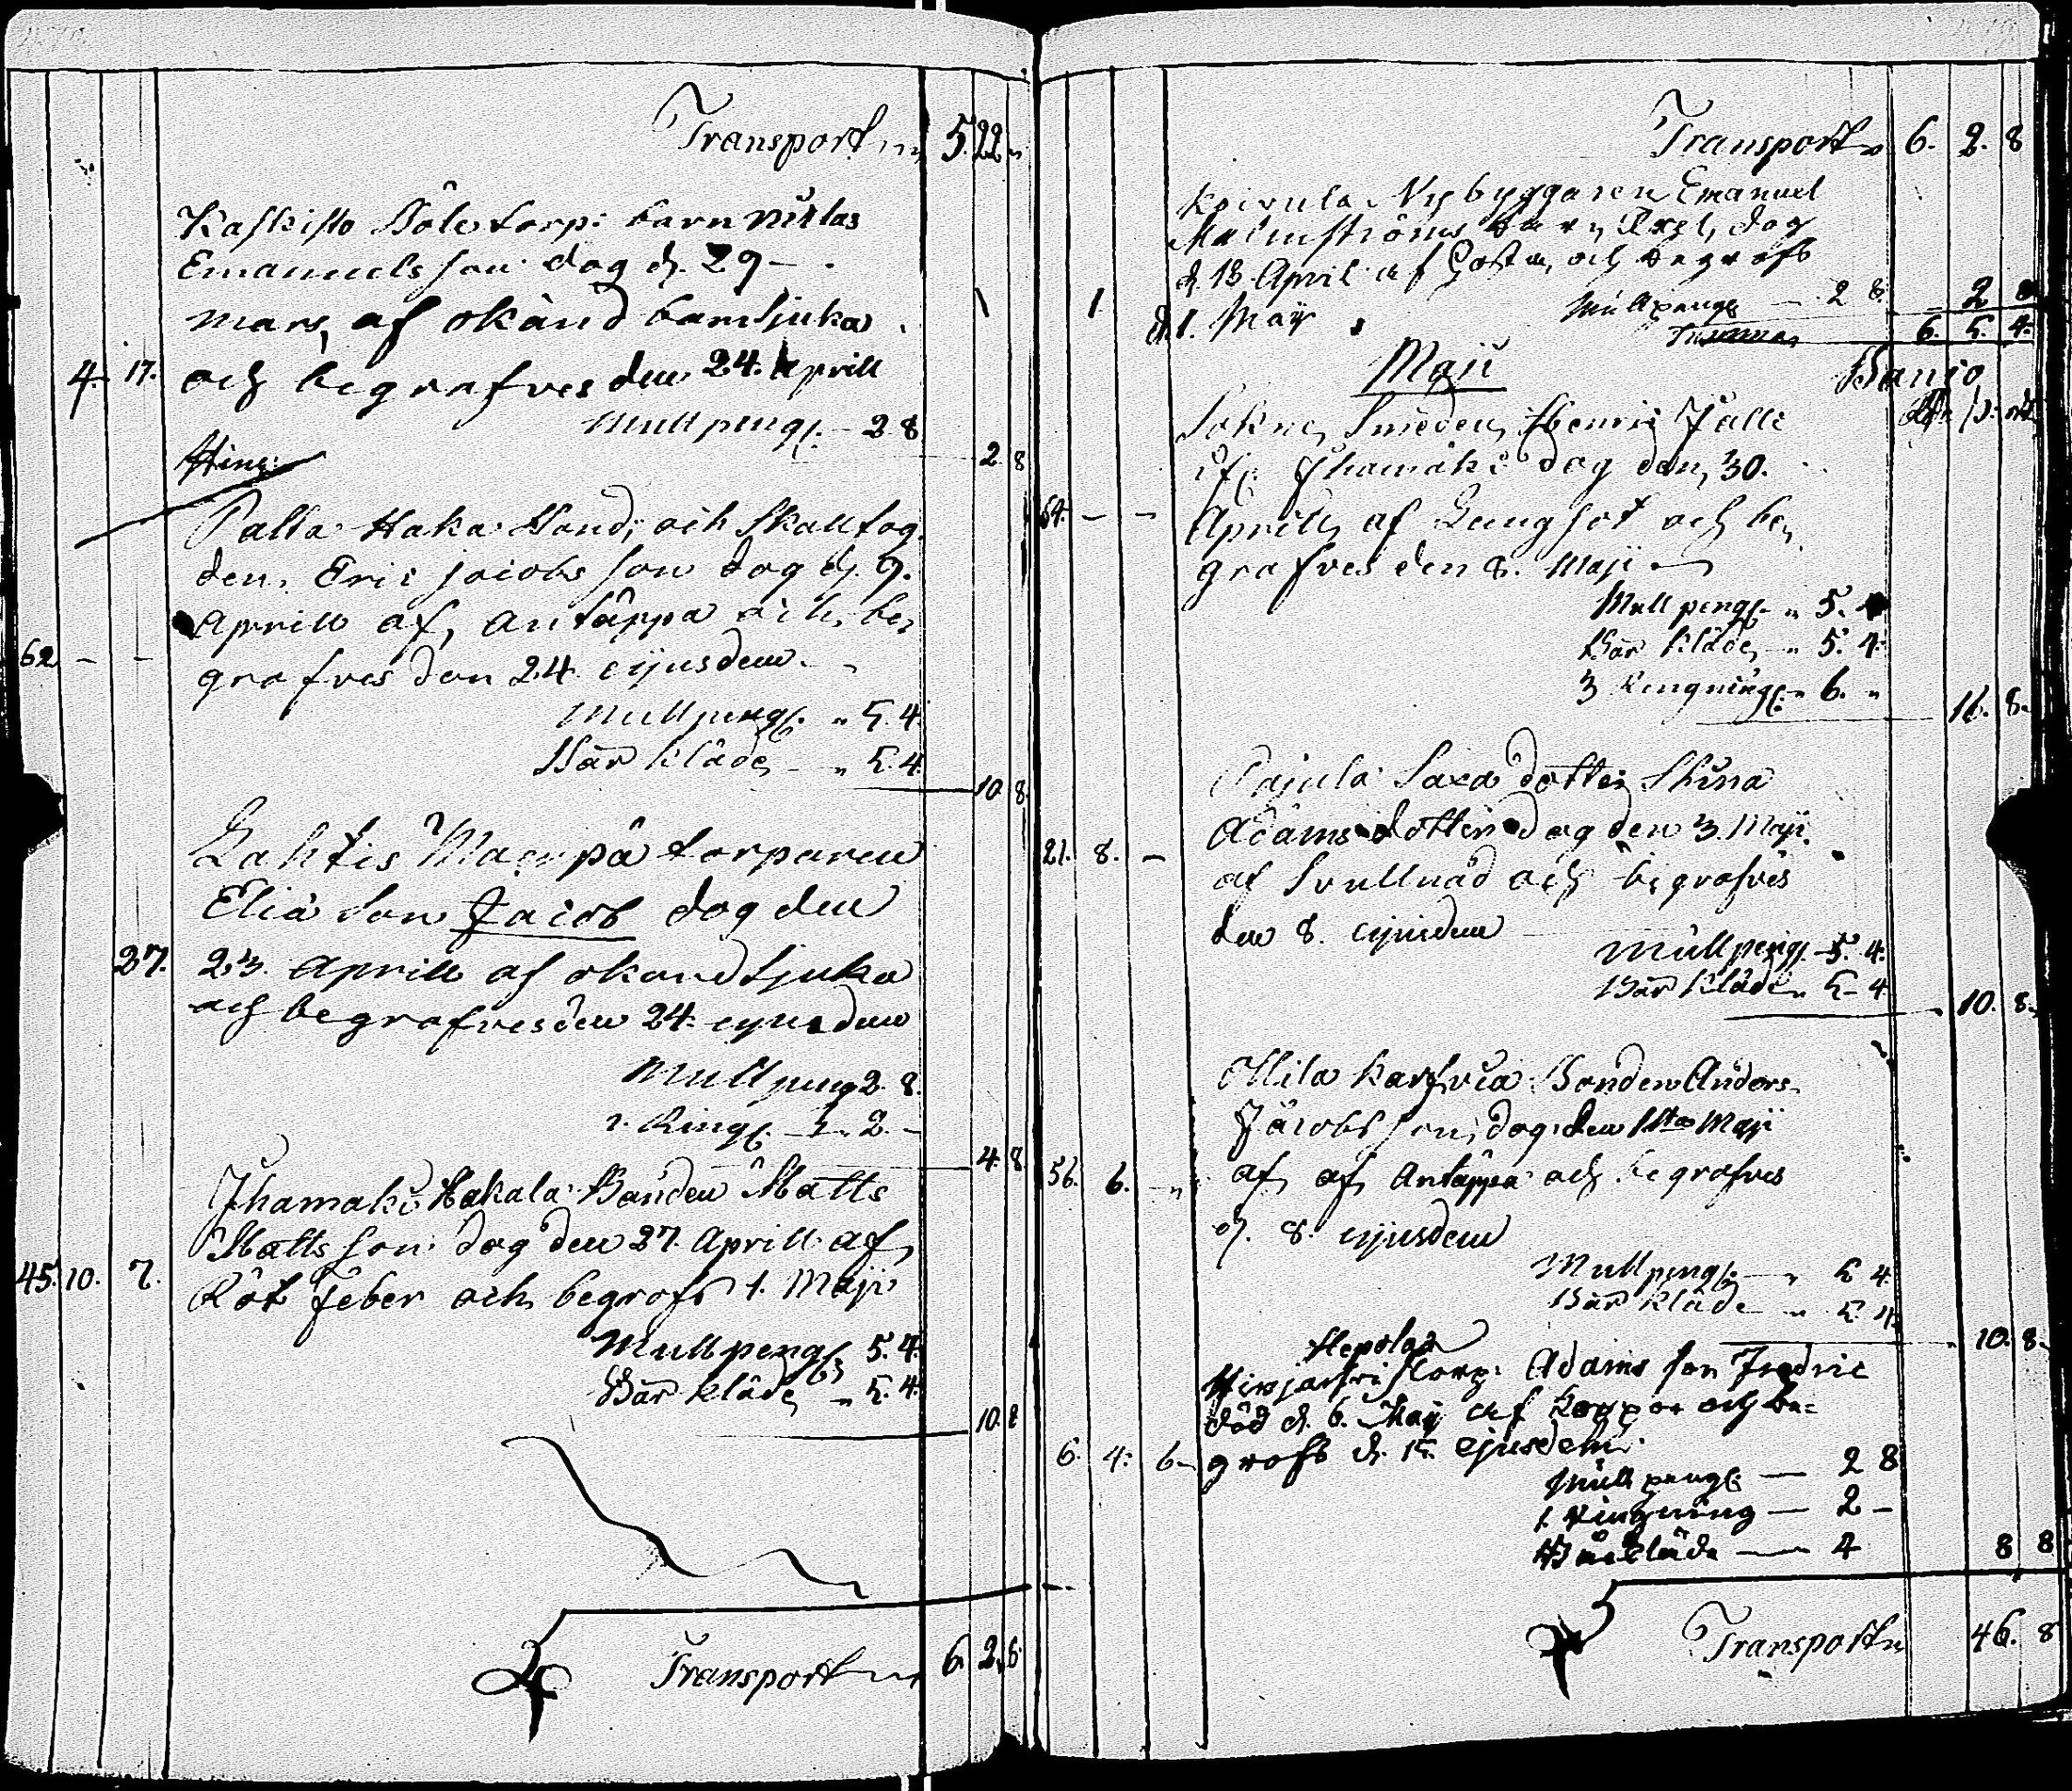 Transport 5. 22
Kaskisto Böle torp: barn Niklas
Emanuels son dog d. 29 –
mars, af okänd barnsjuka
4. 17. och begrafves den 24. Aprill
Mullpeng. – 2 8
2 8
Palla Haka Bond: och Skallfog
den Eric Jacobs son dog d. 9.
Aprill af, Antäppa och be,
62 – – grafves den 24 ejusdem.
Mullpeng. " 5. 4.
Bår kläde, – " 5. 4.
10 8.
Lahtis Maenpä torparen
Elia son Jacob dog den
27. 23. Aprill af okand sjuka
och begrafves den 24. ejusdem
Mullpeng 2. 8.
1. Ring. – 2. –
4. 8.
Jhamaki Hakala Bonden Matts
Matts son dog den 27. Aprill af
45. 10. 7. Röt feber och begrofs 1. Maji
Mullpeng. 5. 4.
Bår kläde " 5. 4.
10. 8
Transport 6. 2. 8.
Transport 6. 2. 8
Koivula Nybyggaren Emanuel
Malmströms barn Axel, dog
d. 18. April af Hosta, och begrofs
1 d. 1. Maij Mullpeng. – 2 8. 2 8
Summa 6. 5. 4.
Maji Banco
Sokne Smeden Henric Fälli
if. Jhamäki dog den, 30.
64. – – Aprill, af Lungsot och be,
grafves den 8. Maji
Mullpeng. " 5. 4
Bår kläde, – " 5. 4.
3 Ringning. " 6. "
16. 8.
Pajula Saxa dotter Stina
21. 8. – Adams dotter dog den 3. Maji.
af Svullnad och begrafves
den 8. ejusdem
Mullpeng. – 5. 4.
Bår kläde " 5 – 4
10. 8.
Ollila Bonden Anders
Jacobs son, dog den 1sta Maji
56. 6. – af, af, Antäppa och begrafves
d. 8. ejusdem
Mullpeng. – " 5 4.
Bår kläde – " 5. 4.
10. 8.
Hepola
Hirvjärvi torp: Adams son Fredric
död d. 6. Maij af Koppor och be=
6. 4. 6. grofs d. 15. ejusdem.
Mullpeng. — 2 8
1. Ringning — 2 –
Bårkläde — 4 8 8
Transport 46. 8